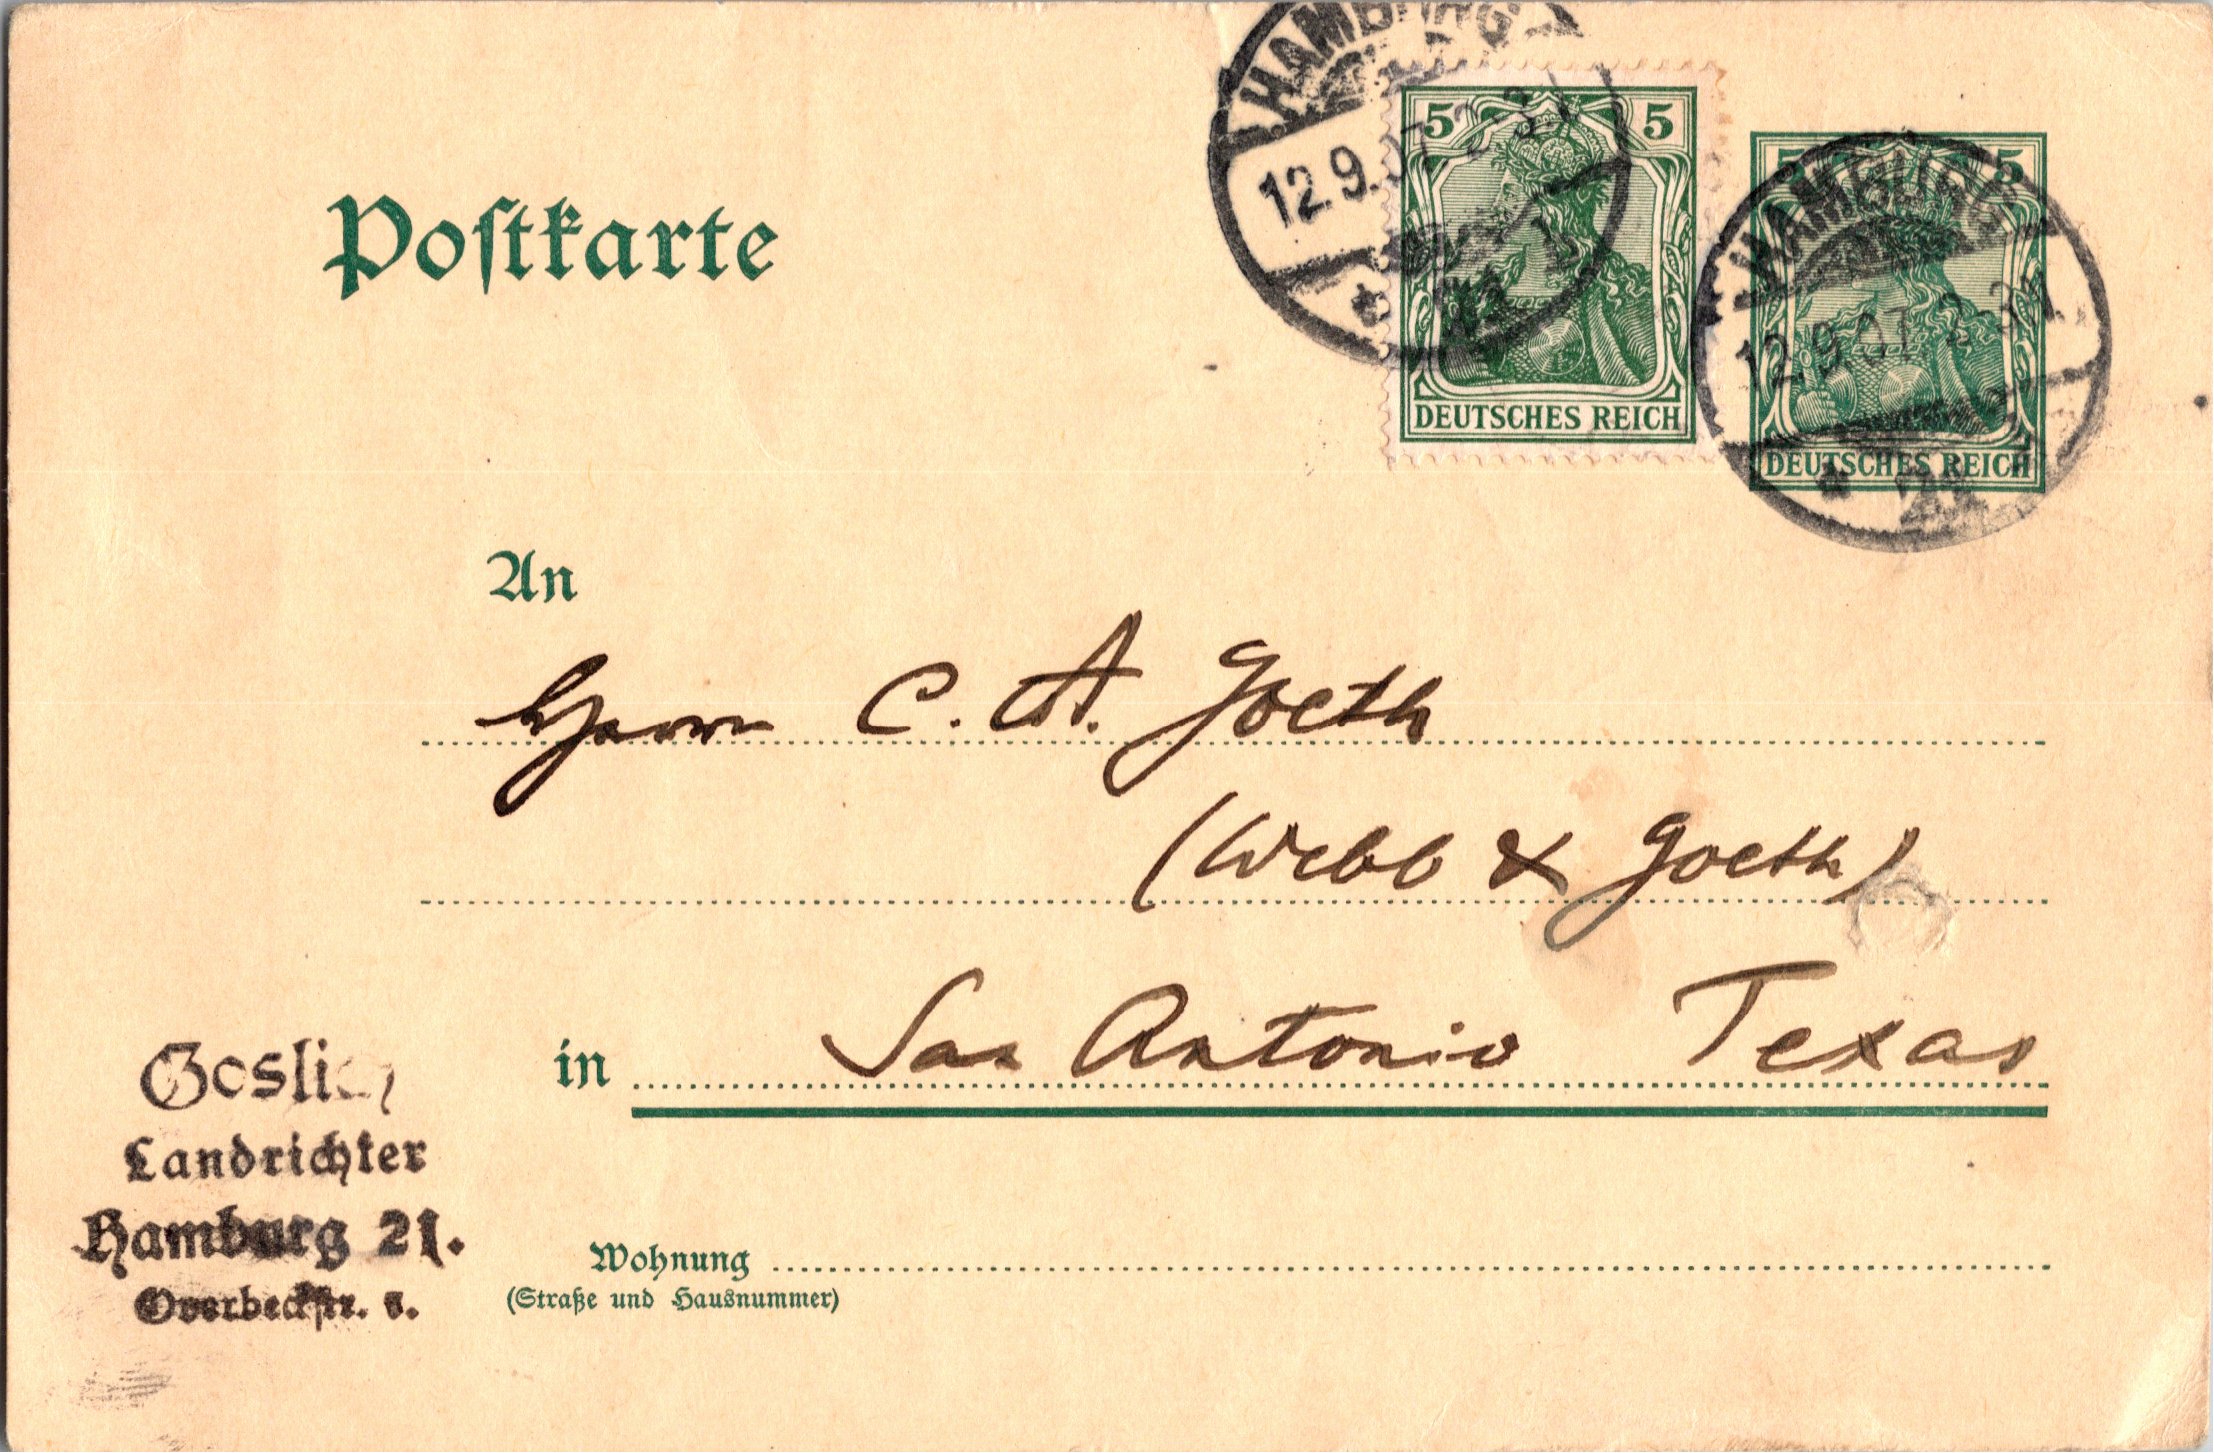 HAMBURG
12.9.07 2-3N
5 5
DEUTSCHES REICH
HAMBURG
12.9.07 2-3N
5 5
DEUTSCHES REICH
Postkarte
An
Herrn C. A. Goeth
(Webb & Goeth)
in San Antonio Texas
Goslich
Landrichter
Hamburg 21.
Overbeckstr.
Wohnung
(Straße und Hausnummer)